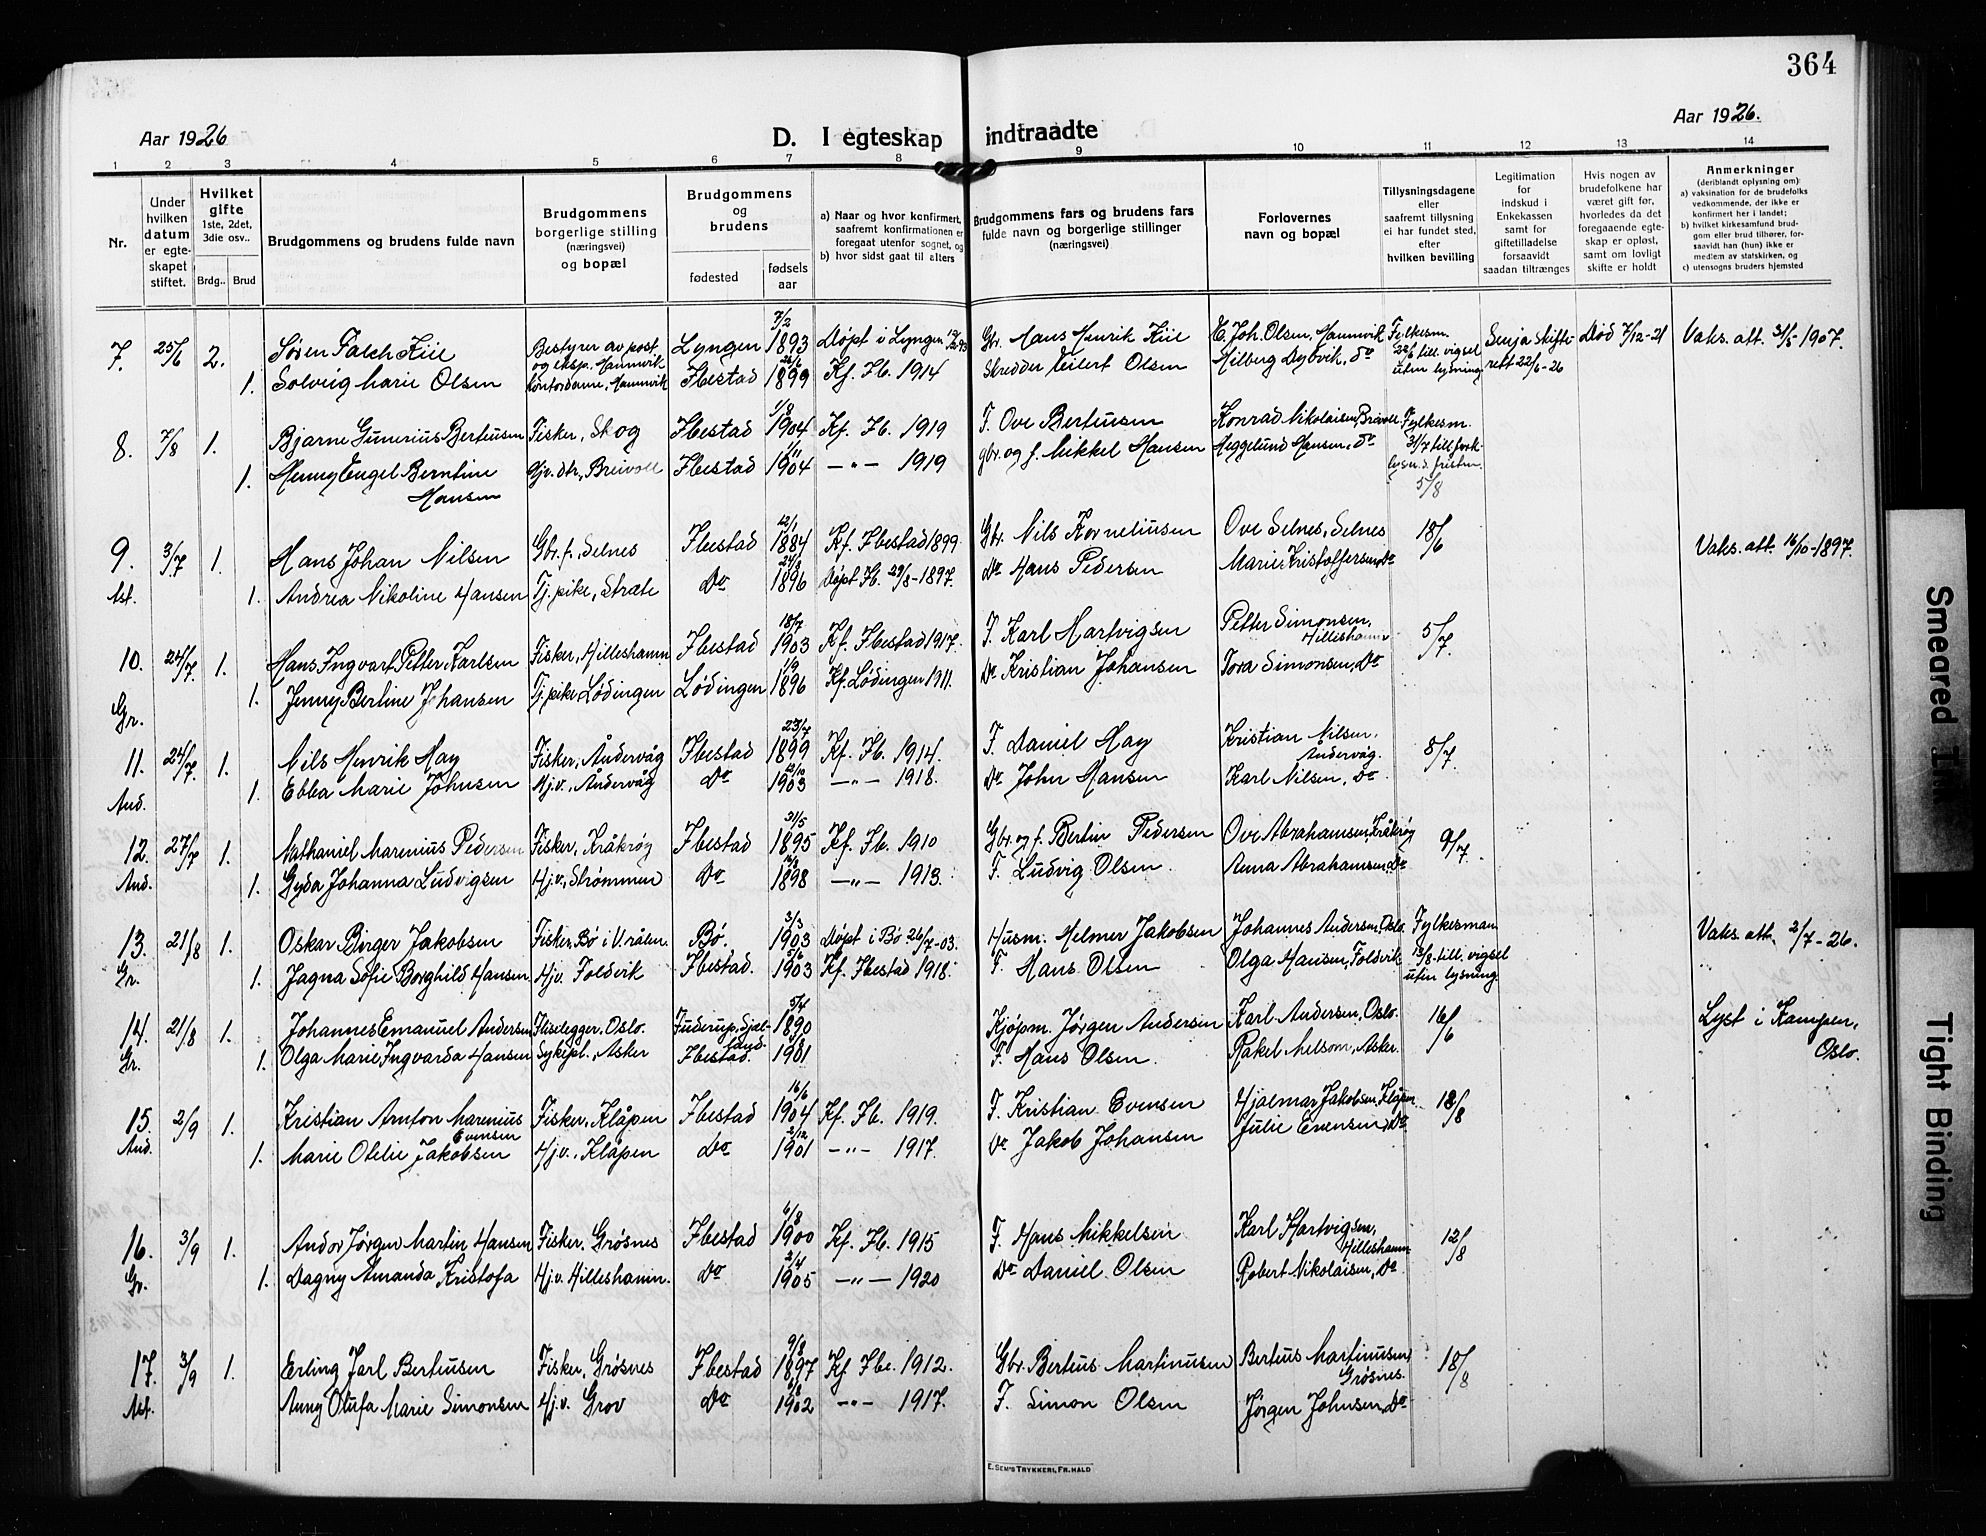 364
Aar 1926
D. I egteskap indtraadte
Aar 1926.
1 2 3 4 5 6 7 8 9 10 11 12 13 14
Nr.
Under hvilken datum er egteskapet stiftet.
Hvilket gifte 1ste, 2det, 3die osv..
Brdg.. Brud
Brudgommens og brudens fulde navn
Brudgommens borgerlige stilling (næringsvei) og bopæl
Brudgommens og brudens
fødested
fødsels aar
a) Naar og hvor konfirmert, saafremt konfirmationen er foregaat utenfor sognet, og
b) hvor sidst gaat til alters
Brudgommens fars og brudens fars fulde navn og borgerlige stillinger (næringsvei)
Forlovernes navn og bopæl
Tillysningsdagene eller saafremt tillysning ei har fundet sted, efter hvilken bevilling
Legitimation for indskud i Enkekassen samt for giftetilladelse forsaavidt saadan tiltrænges
Hvis nogen av brudefolkene har været gift før, hvorledes da det foregaaende egteskap er opløst, samt om lovligt skifte er holdt
Anmerkninger (deriblandt oplysning om):
a) vaksination for de brudefolks vedkommende, der ikke er konfirmert her i landet;
b) hvilket kirkesamfund brudgom eller brud tilhører, forsaavidt han (hun) ikke er medlem av statskirken, og
c) utensogns bruders hjemsted
7. 25/6 2. Søren Falch Kiil Bestyrer av post og eksp. Hamnvik Lyngen 7/2 1893 Døpt i Lyngen Gbr. Hans Henrik Kiil E. Joh. Olsen, Hamnvik Fylkesm. 22/6 till. vigsel uten lysning Senja skifterett 22/6-26 Død 7/12-21 Vaks. att. 31/5-1907.
1. Solveig Marie Olsen Kontordame, Hamnvik Ibestad 1899 Kf. Ib. 1914 Skredder Eilert Olsen Hilberg Dybvik, do
8. 7/8 1. Bjarne Gunerius Berteusen Fisker, Skog Ibestad 1/8 1904 Kf. Ib. 1919 F. Ove Berteusen Konrad Nikolaisen, Breivoll Fylkesm. 31/7 till. fork. lysn.s. fristen 5/8
1. Henny Engel Berntine Hansen Gjv. dtr., Breivoll Ibestad 1904 -"- 1919 gbr. og f. Mikkel Hansen Heggelund Hansen, do
9. 3/7 1. Hans Johan Nilsen Gbr. f., Selnes Ibestad 12/1 1884 Kf. Ibestad 1899 Gbr. Nils Korneliusen Ove Selnes, Selnes 18/6 Vaks. att. 16/10-1897.
Ast. 1. Andrea Nikoline Hansen Tj. pike, Stræte Do 24/8 1896 Døpt Ib. 29/8-1897. Do Hans Pedersen Marie Kristoffersen, Do
10. 24/7. 1. Hans Ingvart Petter Karlsen Fisker, Hilleshamn Ibestad 18/7 1903 Kf. Ibestad 1917. F. Karl Hartvigsen Petter Simonsen, Hilleshamn 5/7
Gr. 1. Jenny Berline Johansen Tj. pike, Lødingen Lødingen 1/9 1896 Kf. Lødingen 1911. Do Kristian Johansen Tora Simonsen, Do
11. 24/7. 1. Nils Henrik Hay Fisker, Åndervåg Ibestad 23/7 1899 Kf. Ib. 1914. F. Daniel Hay Kristian Nilsen, Åndervåg. 8/7
And. 1. Ebba Marie Johnsen Hj.v., Åndervåg Do 12/10 1903 -"- 1918. Do John Hansen Karl Nilsen, Do
12. 27/7 1. Nathaniel Marenius Pedersen Fisker, Kråkrøy Ibestad 31/5 1895 Kf. Ib. 1910 Gbr. og f. Bertin Pedersen Ove Abrahamsen, Kråkrøy 9/7.
And. 1. Gyda Johanna Ludvigsen Hj.v., Strømmen Do 1898 -"- 1913. F. Ludvig Olsen Anna Abrahamsen, Do
13. 21/8 1. Oskar Birger Jakobsen Fisker, Bø i V.rålen Bø. 3/3 1903 Døpt i Bø 26/7-03. Husm. Helmer Jakobsen Johannes Andersen, Oslo. Fylkesman 13/8 till. vigsel uten lysning Vaks. att. 2/7-26.
Gr. 1. Jagna Sofie Borghild Hansen Hjv. Foldvik Ibestad. 1903 Kf. Ibestad 1918. F. Hans Olsen Olga Hansen, Foldvik
14. 21/8 1. Johannes Emanuel Andersen Fliselegger, Oslo. Fuderup, Sjælland. 5/4 1890 Kjøpm. Jørgen Andersen Karl Andersen, Oslo. 16/6 Lyst i Kampen, Oslo.
Gr. 1. Olga Marie Ingvarda Hansen Sykepl., Asker Ibestad. 1901 F. Hans Olsen. Rakel Melsom, Asker.
15. 2/9 1. Kristian Amton Marenius Evensen Fisker, Klåpen Ibestad 16/6 1904 Kf. Ib. 1919. F. Kristian Evensen Hjalmar Jakobsen, Klåpen 18/8
And. 1. Marie Otelie Jakobsen Hj.v., Klåpen Do 2/12 1901 -"- 1917. Do Jakob Johansen Julie Evensen, Do
16. 3/9 1. Andor Jørgen Martin Hansen Fisker, Grøsnes Ibestad 6/8 1900 Kf. Ib. 1915 F. Hans Mikkelsen Karl Hartvigsen, Hilleshamn 12/8
Gr. 1. Dagny Amanda Kristofa Hj.v. Hilleshamn. Do 2/4 1905 -"- 1920 Do Daniel Olsen Robert Nikolaisen, Do
17. 3/9 1. Erling Jarl Berteusen Fisker, Grøsnes Ibestad 9/8 1897 Kf. Ibe. 1912. Gbr. Berteus Martinusen Berteus Martinusen, Grøsnes. 18/8
Ast. 1. Anny Olufa Marie Simonsen Hj.v. Grov Do 6/8 1902 -"- 1917. F. Simon Olsen Jørgen Johnsen, Do
E. SEM'S TRYKKERI, FR.HALD
Smeared Ink
Tight Binding